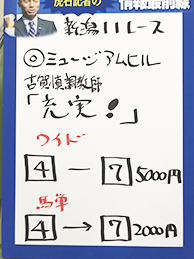 虎石記者の
情報最前線
新潟11レース
◎ミュージアムヒル
古賀慎調教師
「充実!」
ワイド
4－7 5000円
馬単
4→7 2000円